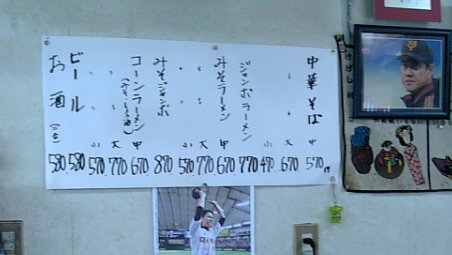 中華そば 中 570円
〃 大 670
〃 小 470
ジャンボラーメン 770
みそラーメン 中 670
〃 大 770
〃 小 570
みそジャンボ 870
コーンラーメン 中 670
〃 大 770
〃 小 570
ビール 580
お酒 580